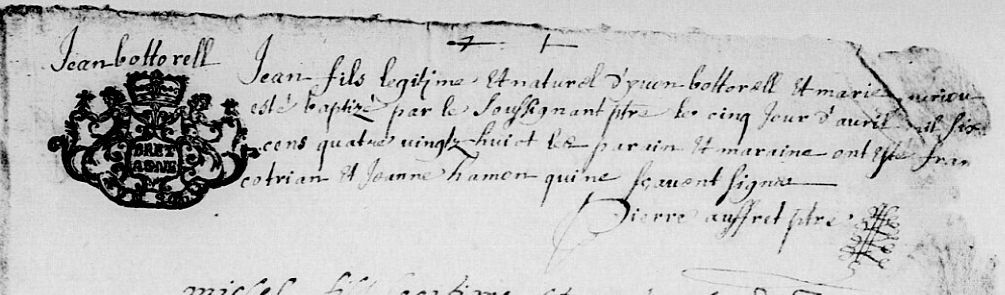 Jean bottorell
Jean fils legitime Et naturel d'yuon bottorell Et marie
esté baptizé par le soussignant ptre le cinq Jour d'auril mil six
cens quatre vingtz huict les parain Et maraine ont Esté fran
cotrian Et Jeanne hamon qui ne scavent signer
Pierre auffret ptre
BRET
AGNE
michel fils